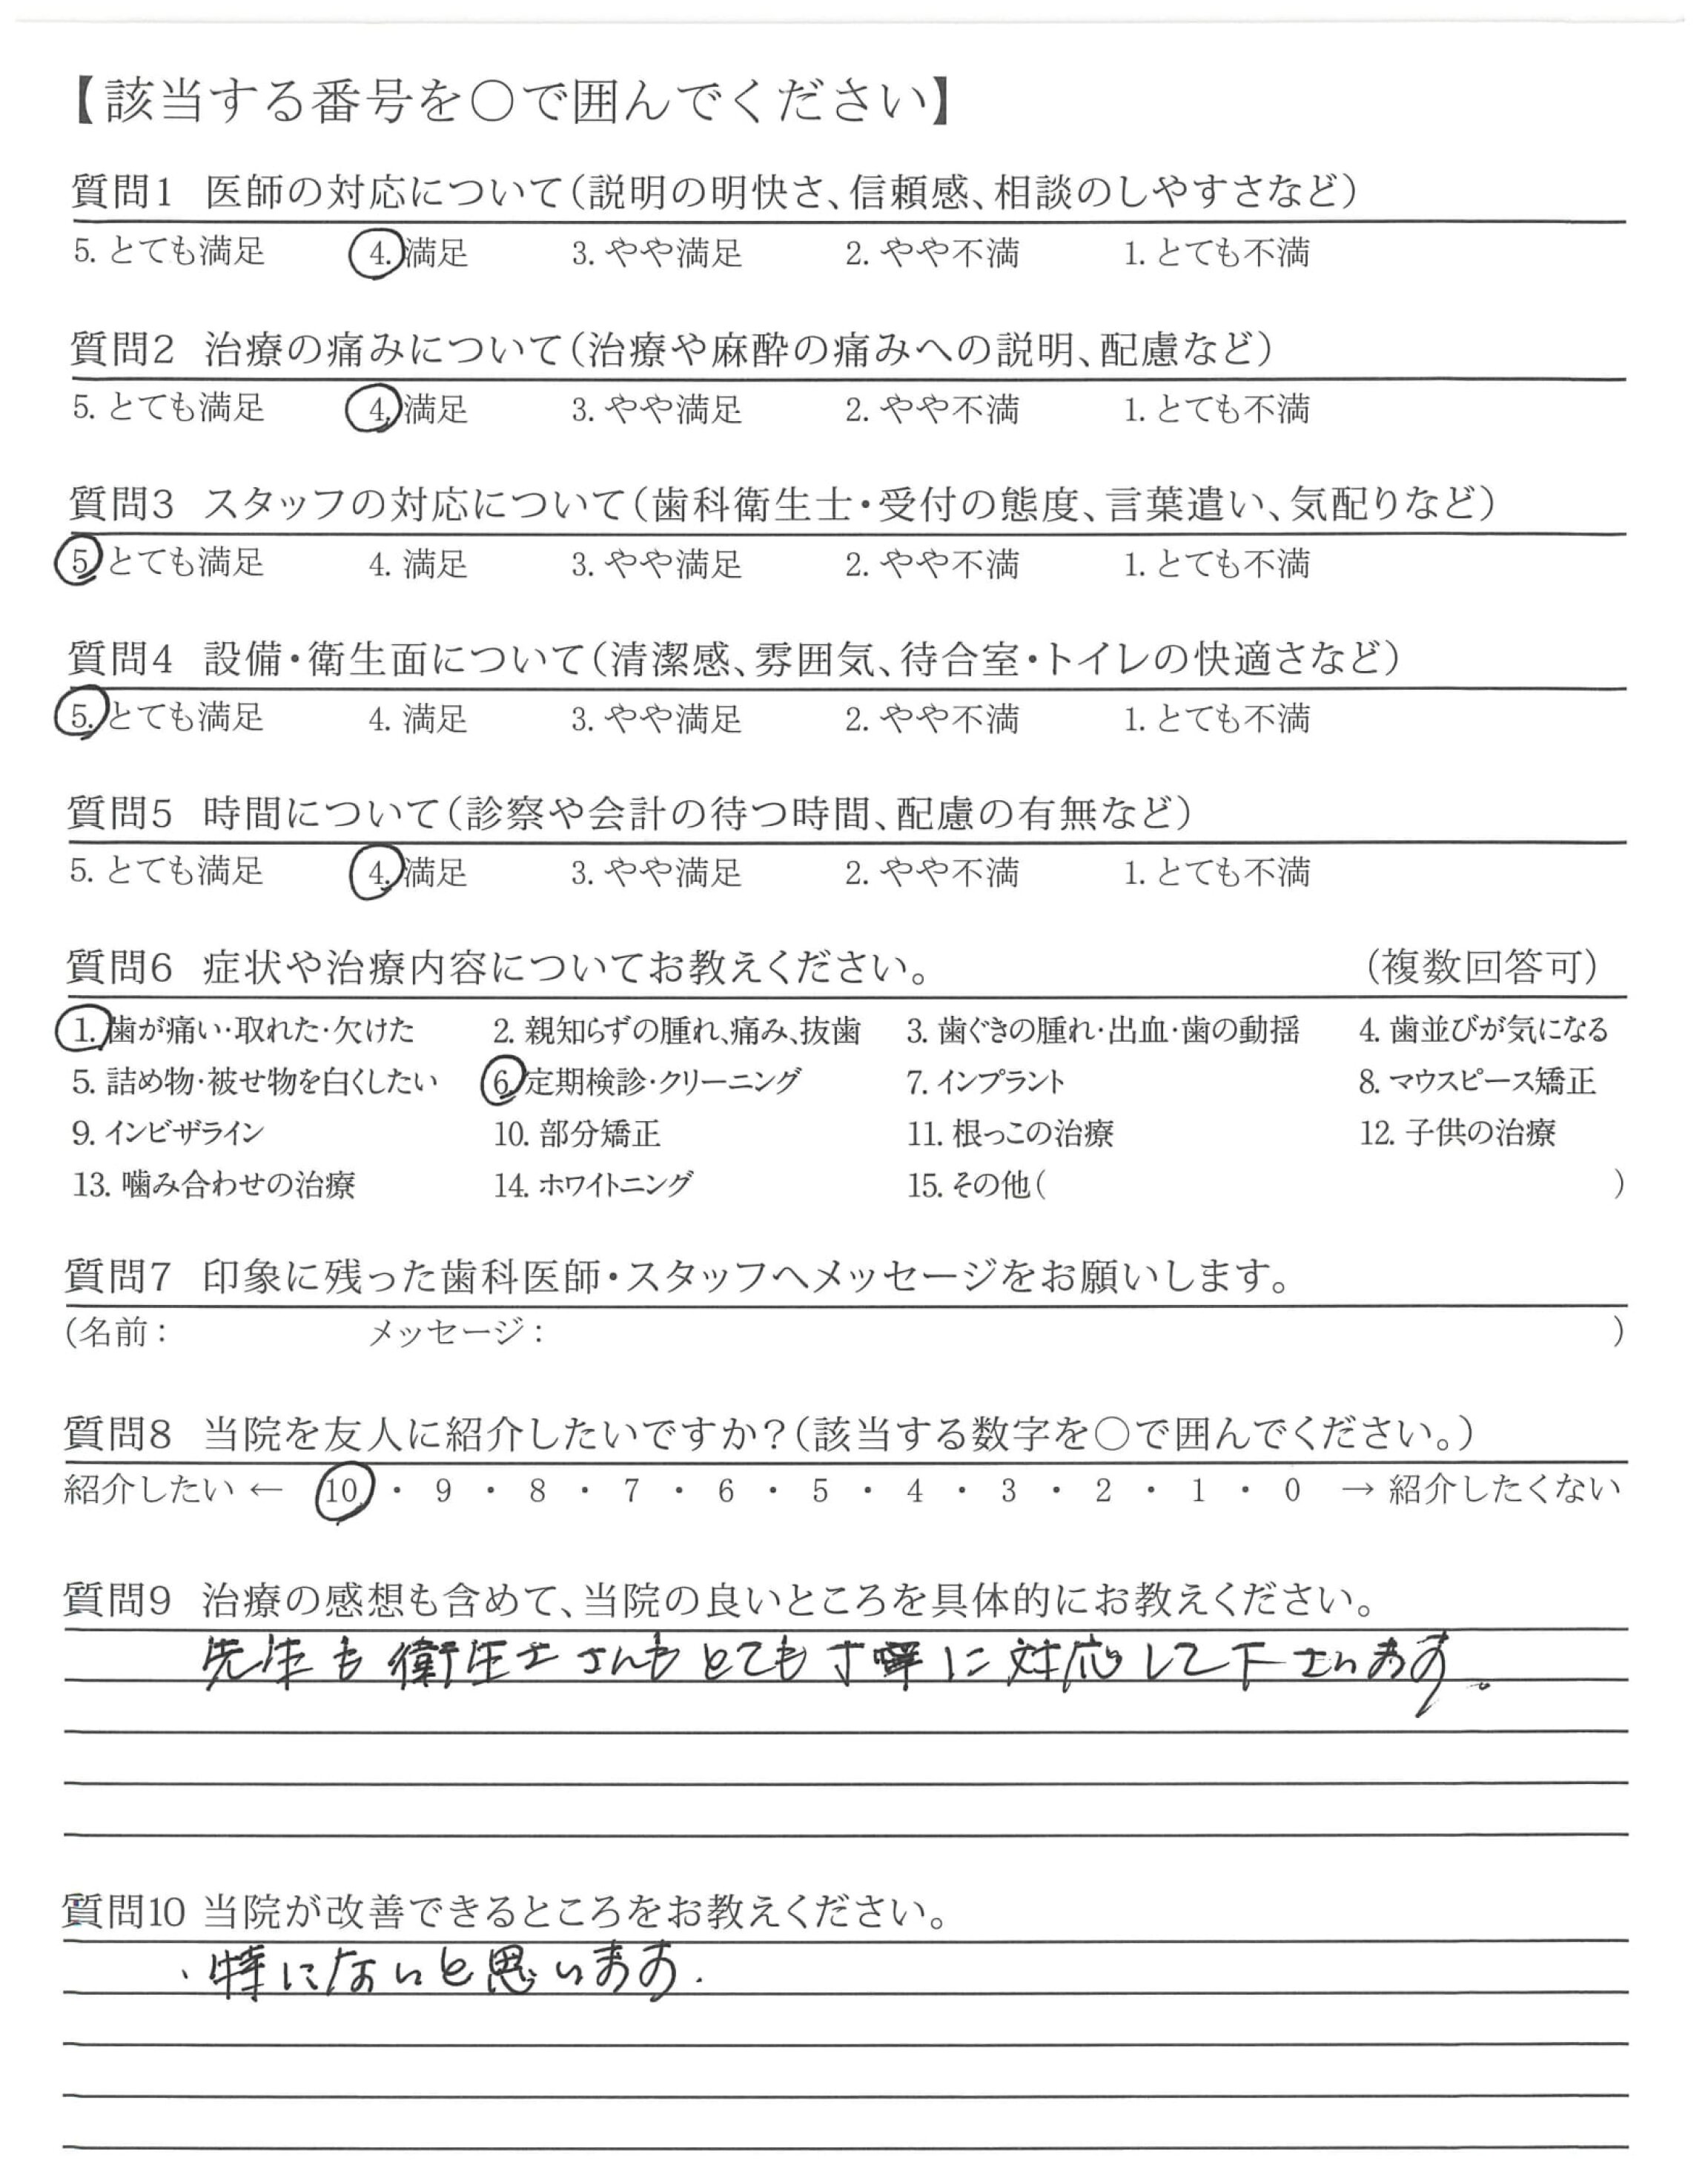 【該当する番号を〇で囲んでください】
質問1 医師の対応について(説明の明快さ、信頼感、相談のしやすさなど)
5. とても満足 4. 満足 3. やや満足 2. やや不満 1. とても不満
質問2 治療の痛みについて(治療や麻酔の痛みへの説明、配慮など)
5. とても満足 4. 満足 3. やや満足 2. やや不満 1. とても不満
質問3 スタッフの対応について(歯科衛生士・受付の態度、言葉遣い、気配りなど)
5. とても満足 4. 満足 3. やや満足 2. やや不満 1. とても不満
質問4 設備・衛生面について(清潔感、雰囲気、待合室・トイレの快適さなど)
5. とても満足 4. 満足 3. やや満足 2. やや不満 1. とても不満
質問5 時間について(診察や会計の待つ時間、配慮の有無など)
5. とても満足 4. 満足 3. やや満足 2. やや不満 1. とても不満
質問6 症状や治療内容についてお教えください。 (複数回答可)
1. 歯が痛い・取れた・欠けた 2. 親知らずの腫れ、痛み、抜歯 3. 歯ぐきの腫れ・出血・歯の動揺 4. 歯並びが気になる
5. 詰め物・被せ物を白くしたい 6. 定期検診・クリーニング 7. インプラント 8. マウスピース矯正
9. インビザライン 10. 部分矯正 11. 根っこの治療 12. 子供の治療
13. 噛み合わせの治療 14. ホワイトニング 15. その他( )
質問7 印象に残った歯科医師・スタッフへメッセージをお願いします。
(名前: メッセージ: )
質問8 当院を友人に紹介したいですか?(該当する数字を〇で囲んでください。)
紹介したい ← 10 ・ 9 ・ 8 ・ 7 ・ 6 ・ 5 ・ 4 ・ 3 ・ 2 ・ 1 ・ 0 → 紹介したくない
質問9 治療の感想も含めて、当院の良いところを具体的にお教えください。
先生も衛生士さんもとても丁寧に対応して下さいます。
質問10 当院が改善できるところをお教えください。
・特にないと思います.